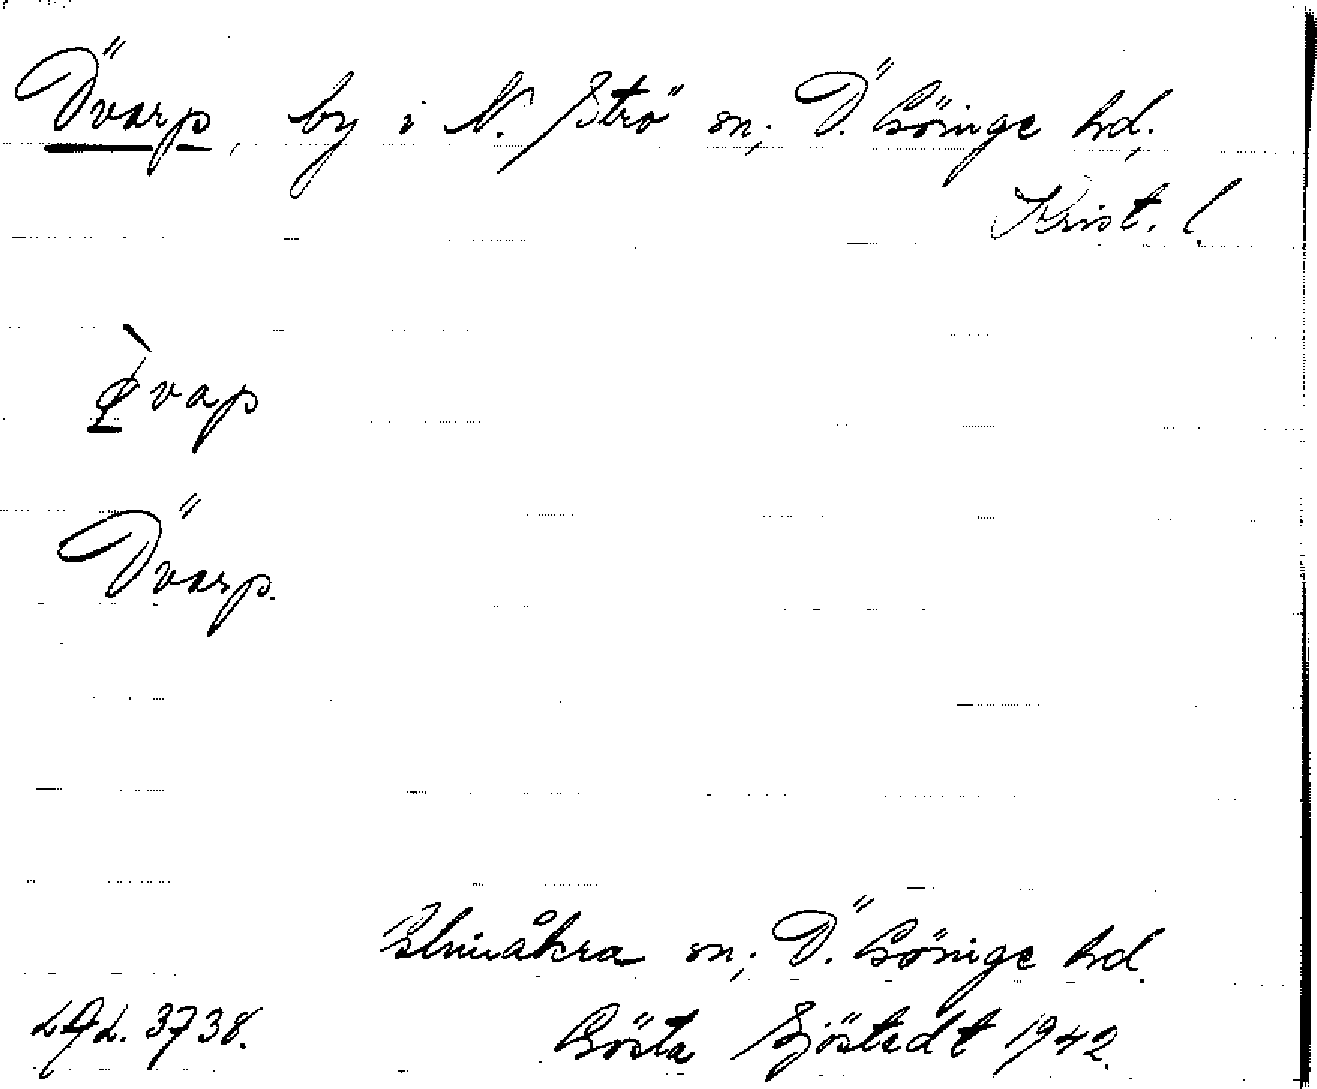 Övarp, by i N. Strö sn; Ö. Göinge hd;
Krist. l.
Övarp.
Glimåkra sn; Ö. Göinge hd.
LAL. 3738.
Gösta Sjöstedt 1942.